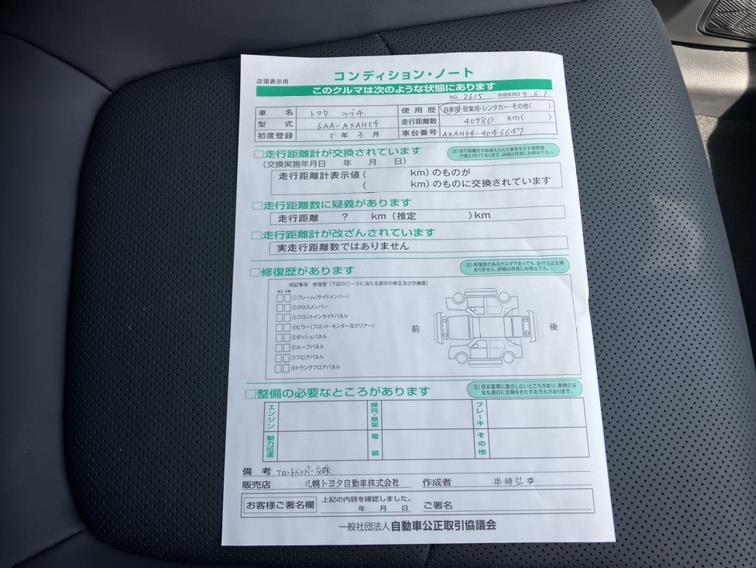 店頭表示用
コンディション・ノート
このクルマは次のような状態にあります
NO. 2615 作成年月日 7.6.1
車名 トヨタ ラブ4 使用歴 自家用・営業用・レンタカー・その他( )
型式 6AA-AXAH54 走行距離数 40780 km( )
初度登録 5年3月 車台番号 AXAH54-4046647
□走行距離計が交換されています
(交換実施年月日 年 月 日)
走行距離計表示値( km)のものが
( km)のものに交換されています
□走行距離数に疑義があります
走行距離 ? km(推定 )km
□走行距離計が改ざんされています
実走行距離数ではありません
□修復歴があります
特記事項 修復歴(下記の①〜⑧に当たる部分の修正及び交換歴)
①フレーム(サイドメンバー)
②クロスメンバー
③フロントインサイドパネル
④ピラー(フロント・センター及びリアー)
⑤ダッシュパネル
⑥ルーフパネル
⑦フロアパネル
⑧トランクフロアパネル
前 後
□整備の必要なところがあります
エンジン 操向・懸架 ブレーキ
動力伝達 電装 その他
備考 フロントバンパー交換
販売店 札幌トヨタ自動車株式会社 作成者 串崎弘幸
お客様ご署名欄 上記の内容を確認しました。
年 月 日 ご署名
一般社団法人 自動車公正取引協議会